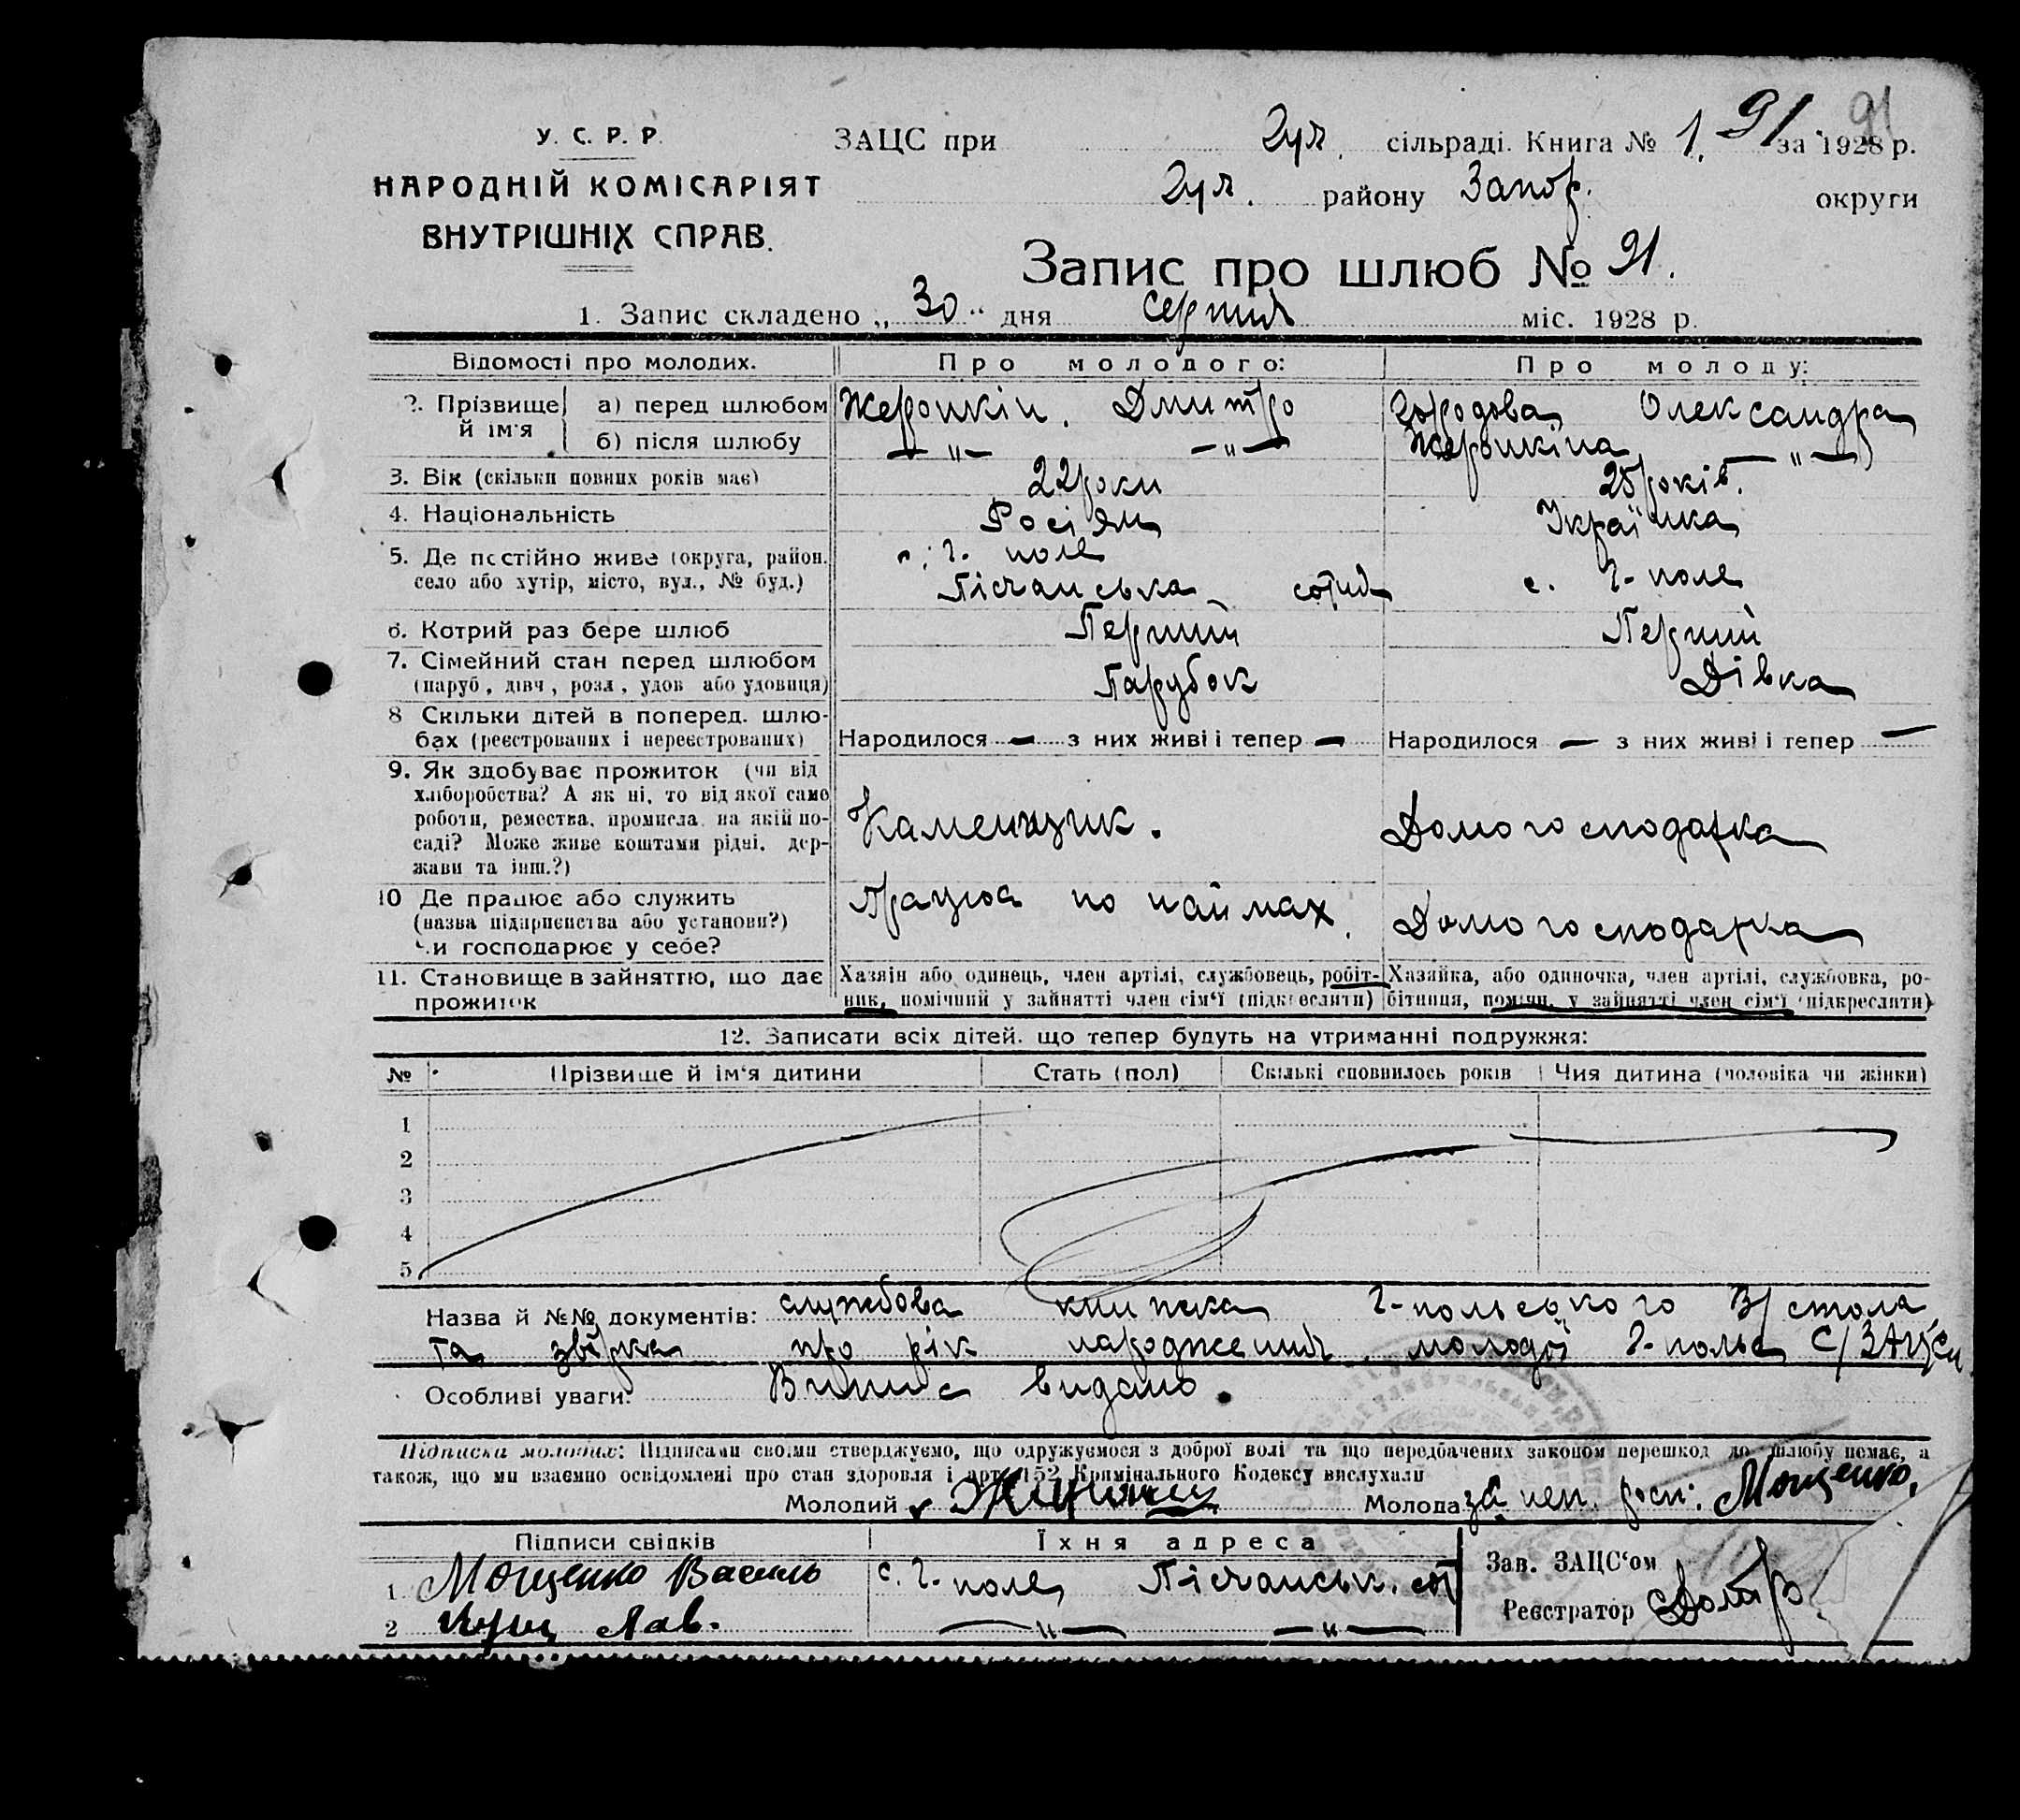 91
У. С. Р. Р.
НАРОДНІЙ КОМІСАРІЯТ
ВНУТРІШНІХ СПРАВ.
ЗАЦС при Гул. сільраді. Книга № 1. 91 за 1928 р.
Гул. району Запор. округи
Запис про шлюб № 91.
1. Запис складено „30“ дня серпня міс. 1928 р.
Відомості про молодих. Про молодого: Про молоду:
2. Прізвище й ім'я а) перед шлюбом Жеронкін. Дмитро Городова Олександра
б) після шлюбу — „ — — „ — Жеронкіна — „ —
3. Вік (скільки повних років має) 22 роки 25 років.
4. Національність Росіян Українка
5. Де постійно живе (округа, район. с. Г. поле
село або хутір, місто, вул., № буд.) Пісчанська сотня с. Г-поле
6. Котрий раз бере шлюб Перший Перший
7. Сімейний стан перед шлюбом
(паруб, дівч, розл, удов або удовиця) Парубок Дівка
8 Скільки дітей в поперед. шлю-
бах (реєстрованих і нереєстрованих) Народилося — з них живі і тепер — Народилося — з них живі і тепер —
9. Як здобуває прожиток (чи від
хліборобства? А як ні, то від якої само
роботи, ремества, промисла, на якій по-
саді? Може живе коштами рідні, дер-
жави та інш.?) Каменщик. Домогосподарка
10 Де працює або служить
(назва підприєнства або установи?)
Чи господарює у себе? Працює по наймах. Домогосподарка
11. Становище в зайняттю, що дає
прожиток
Хазяін або одинець, член артілі, службовець, робіт-
ник, помічний у зайнятті член сім‘ї (підкреслити)
Хазяйка, або одиночка, член артілі, службовка, ро-
бітниця, помічн. у зайнятті член сім‘ї (підкреслити)
12. Записати всіх дітей, що тепер будуть на утриманні подружжя:
№ Прізвище й ім‘я дитини Стать (пол) Скількі сповнилось років Чия дитина (чоловіка чи жінки)
1
2
3
4
5
Назва й №№ документів: службова книжка Г-польського В/стола
та звірка про рік народження молодої Г-польс С/ЗАЦСи
Особливі уваги: Випис видано.
Підписка молодих: Підписами своїми стверджуємо, що одружуємося з доброї волі та що передбачених законом перешкод до шлюбу немає, а
також, що ми взаємно освідомлені про стан здоровля і арт. 152 Крамінального Кодексу вислухали
Молодий Молода за неп. росп: Мощенко,
Підписи свідків Їхня адреса
1 Мощенко Василь с. Г-поле, Пісчанськ. сот
2 Лав. — „ — — „ —
Зав. ЗАЦС‘ом
Реєстратор